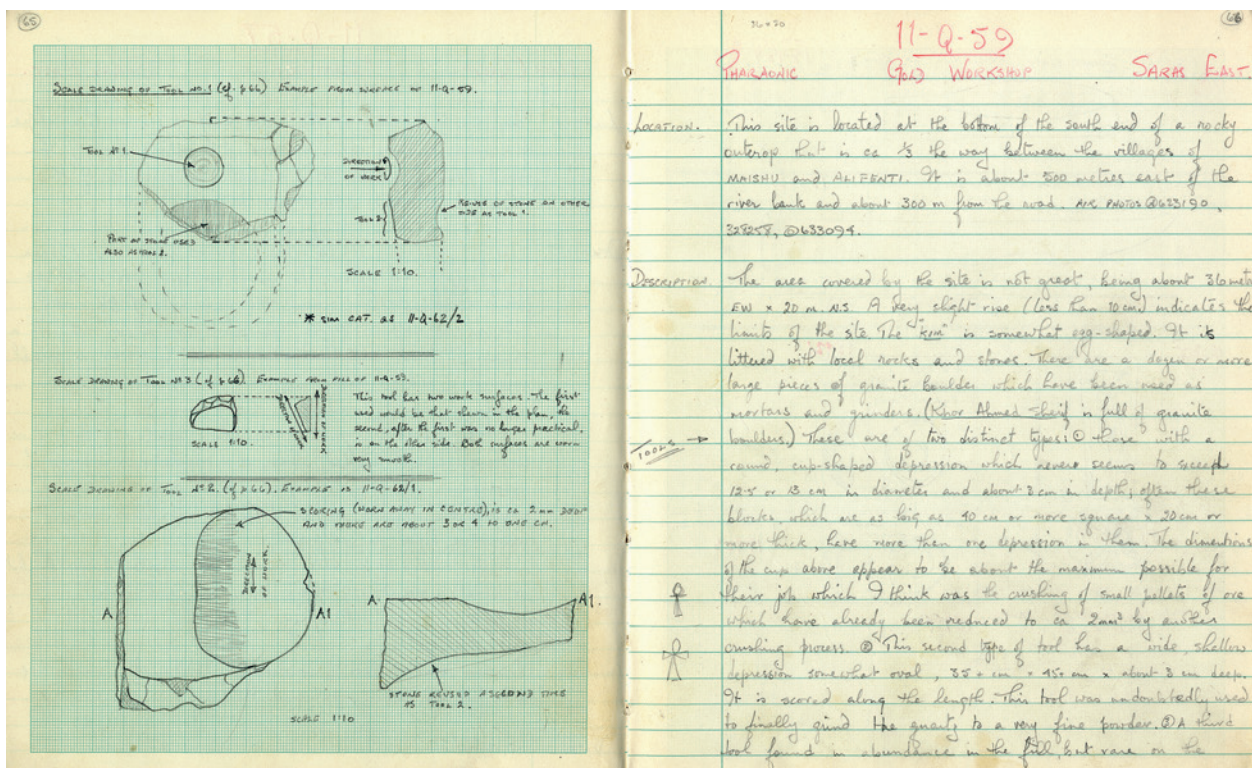 65
SCALE DRAWING OF TOOL NO. 1 (cf. p 66) EXAMPLE FROM SURFACE OF 11-Q-59.
TOOL Nº 1.
DIRECTION
OF WORK
TOOL 2
REUSE OF STONE ON OTHER
SIDE AS TOOL 1.
PART OF STONE USED
ALSO AS TOOL 2.
SCALE 1:10.
* SIM CAT. AS 11-Q-62/2
SCALE DRAWING OF TOOL Nº 3 (cf p 66). EXAMPLE FROM FILL OF 11-Q-59.
This tool has two work surfaces. The first
used would be that shown in the plan, the
second, after the first was no longer practical,
is on the other side. Both surfaces are worn
very smooth.
DIRECTION OF WORK
SCALE 1:10.
SCALE DRAWING OF TOOL Nº 2. (cf p 66). EXAMPLE IS 11-Q-62/1.
SCORING (WORN AWAY IN CENTRE), IS CA 2 mm DEEP
AND THERE ARE ABOUT 3 OR 4 TO ONE CM.
DIRECTION
OF WORK.
A
A1
A
A1.
STONE REUSED A SECOND TIME
AS TOOL 2.
SCALE 1:10
66
11-Q-59
PHARAONIC GOLD WORKSHOP SARAS EAST.
LOCATION. This site is located at the bottom of the south end of a rocky
outcrop that is ca 1/3 the way between the villages of
MAISHU and ALIFENTI. It is about 500 metres east of the
river bank and about 300 m from the road. AIR PHOTOS @633190,
328258, @633094.
DESCRIPTION. The area covered by the site is not great, being about 36 met
EW × 20 m. N.S. A very slight rise (less than 10 cm) indicates the
limits of the site. The "kom" is somewhat egg-shaped. It is
littered with local rocks and stones. There are a dozen or more
large pieces of granite boulder which have been used as
mortars and grinders. (Khor Ahmed Sherif is full of granite
TOOLS → boulders.) These are of two distinct types: ① those with a
round, cup-shaped depression which never seems to exceed
12.5 or 13 cm in diameter and about 8 cm in depth; often these
blocks, which are as big as 40 cm or more square × 20 cm or
more thick, have more than one depression in them. The dimentions
of the cup above appear to be about the maximum possible for
their job which I think was the crushing of small pellets of ore
which have already been reduced to ca 2mm³ by another
crushing process. ② This second type of tool has a wide, shallow
depression somewhat oval, 35+ cm × 45+ cm × about 8 cm deep.
It is scored along the length. This tool was undoubtedly used
to finally grind the quartz to a very fine powder. ③ A third
tool found in abundance in the fill, but rare on the